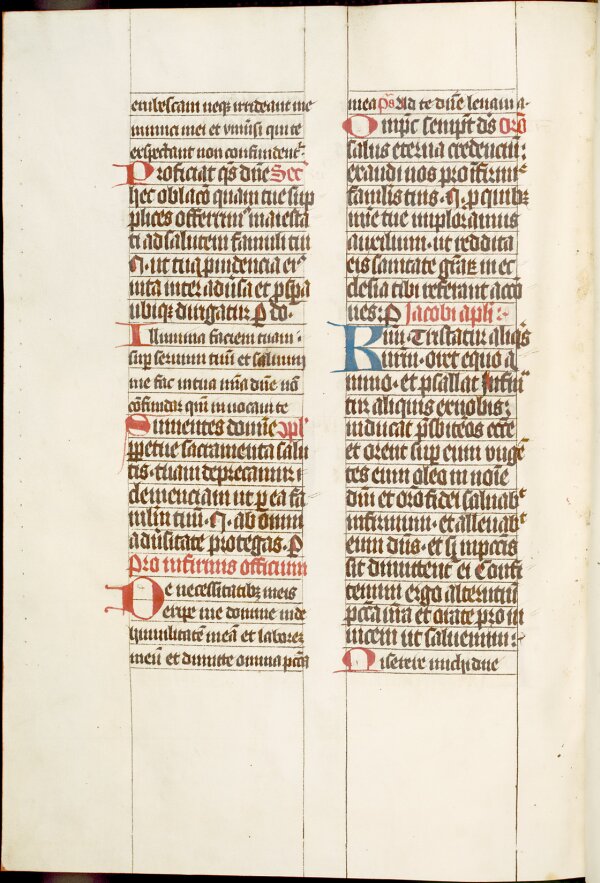 erubescam neq irrideant me
inimici mei et vniusi qui te
expectant non confundent
Proficiat qs dne Sec
hec oblaco quam tue sup
plices offerrim maiesta
ti ad salutem famuli tui
N. ut tua puidencia ei
uita inter aduersa et pspa
ubiq dirigatur P do.
Illumina faciem tuam
sup seruum tuu et saluum
me fac in tua mia dne no
cofundar qm inuocaui te
Sumentes domine Cpl
ppetue sacramenta salu
tis. tuam deprecamur
clemenciam ut p ea fa
mulu tuu. N. ab omni
aduersitate protegas. P
Pro infirmis officium
De necessitatibz meis
eripe me domine uide
humilitate mea et labore
meu et dimitte omnia pcca
mea ps Ad te dne leuaui a
Omps sempit ds Oro
salus eterna credenciu:
exaudi nos pro ifirmi
famulis tuis. N. p quibz
mie tue imploramus
auxilium. ut reddita
eis sanitate graz in ec
clesia tibi referant acco
nes: P Jacobi apli
Kmi. Tristatur aliqs
urum. oret equo a
nimo. et psallat Infirm
tur aliquis ex uobis:
inducat psbiteros ecce
et orent sup eum unge
tes eum oleo in noie
dni et oro fidei saluab
infirmum. et alleuab
eum dns. et si in pccis
sit dimittent ei Confi
temini ergo alterutru
pcca ura et orate pro in
uicem ut saluemini:
Miserere michi dne